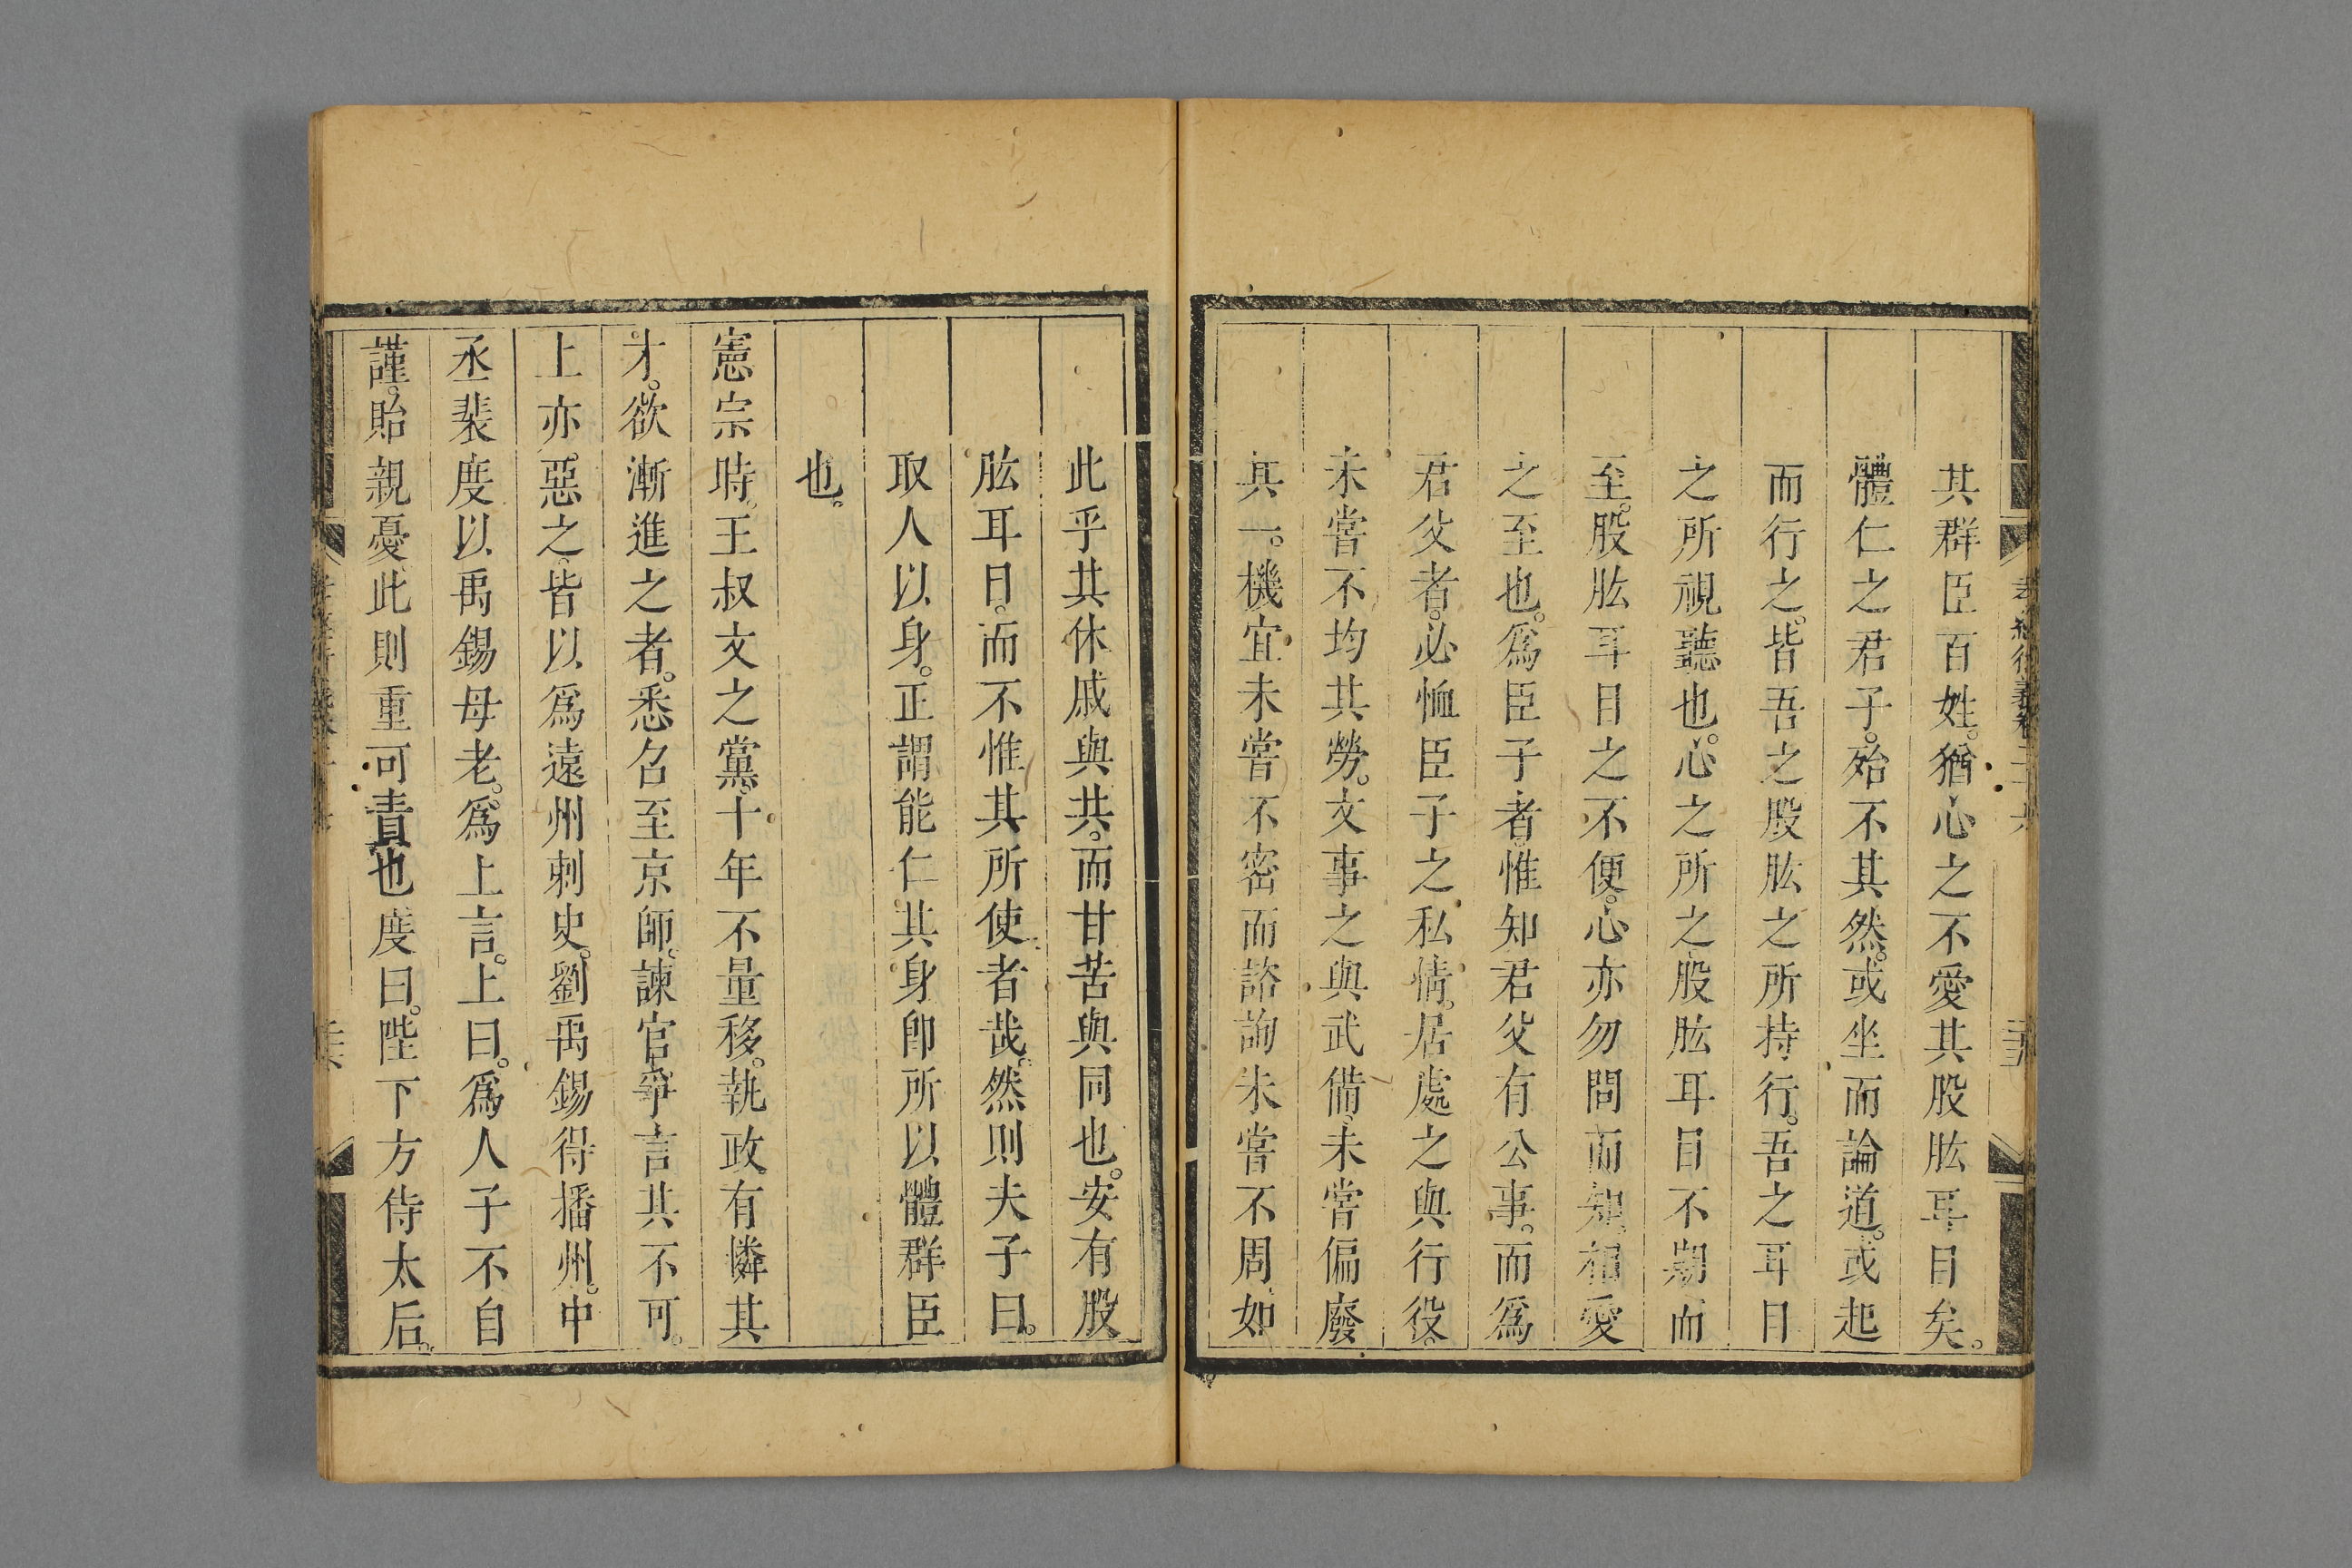 其群臣百姓。猶心之不愛其股肱耳目矣。
體仁之君子。殆不其然。或坐而論道。或起
而行之。皆吾之股肱之所持行。吾之耳目
之所視聽也。心之所之。股肱耳目不期而
至。股肱耳目之不便。心亦勿問而知。相愛
之至也。爲臣子者。惟知君父有公事。而爲
君父者。必恤臣子之私情。居處之與行役。
未嘗不均其勞。文事之與武備。未嘗偏廢
其一。機宜未嘗不密而諮詢未嘗不周。如
此乎其休戚與共。而甘苦與同也。安有股
肱耳目。而不惟其所使者哉。然則夫子曰。
取人以身。正謂能仁其身卽所以體群臣
也。
憲宗時。王叔文之黨。十年不量移。執政有憐其
才。欲漸進之者。悉召至京師。諫官爭言其不可。
上亦惡之。皆以爲遠州刺史。劉禹錫得播州。中
丞裴度以禹錫母老。爲上言。上曰。爲人子不自
謹。貽親憂。此則重可責也。度曰。陛下方侍太后。